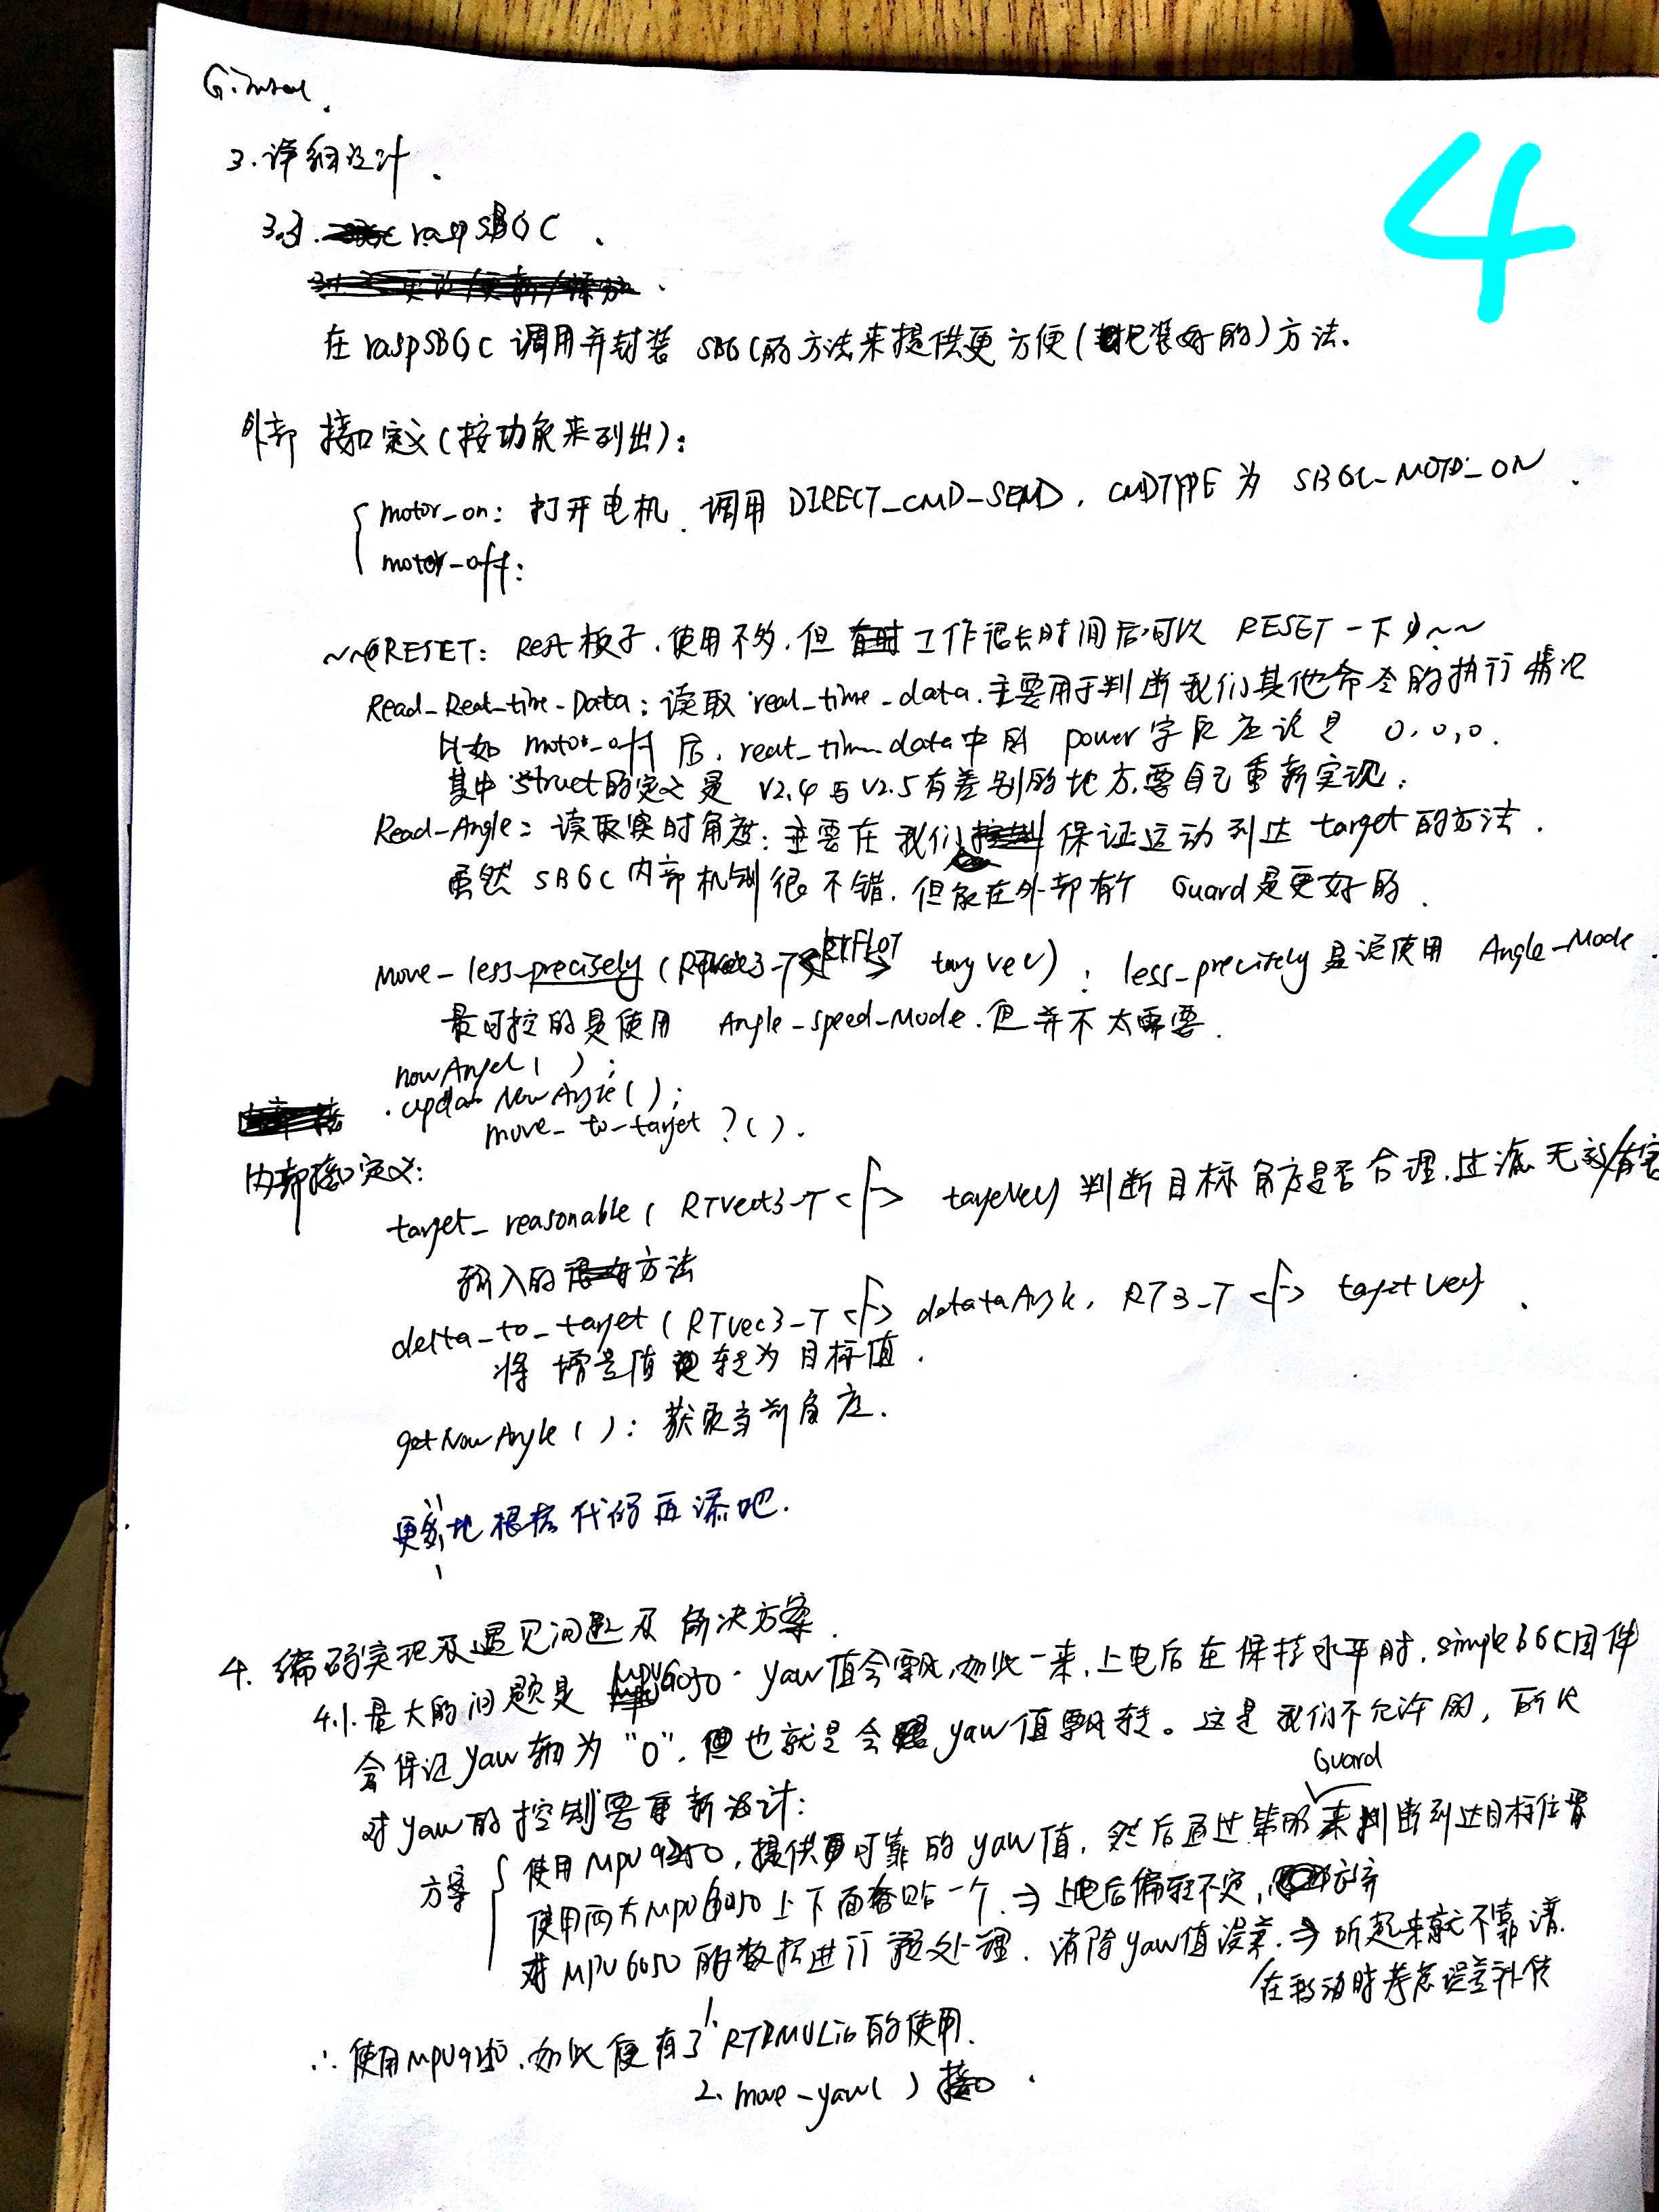 Gimbal.
4
3. 详细设计.
3.1. raspSBGC.
在 raspSBGC 调用并封装 SBGC的方法来提供更方便(包装好的)方法.
外部 接口定义(按功能来列出):
motor_on: 打开电机. 调用 DIRECT_CMD_SEND, CMDTYPE 为 SBGC_MOTO_ON.
motor_off:
~~RESET: Reset 板子.使用不多.但 工作很长时间后可以 RESET 一下~~
Read_Real_time_Data: 读取 real_time_data.主要用于判断我们其他命令的执行情况
比如 motor_off 后. real_time_data中的 power字段应该是 0,0,0.
其中 struct的定义是 V2.4 与 V2.5 有差别的地方,要自己重新实现;
Read_Angle: 读取实时角度: 主要在 我们 保证运动到达 target 的方法.
虽然 SBGC 内部机制很不错, 但能在外部有个 Guard是更好的.
Move_less_precisely ( targ vec) : less_precisely 是说使用 Angle_Mode.
最可控的是使用 Angle_Speed_Mode.但并不太需要.
nowAngel( );
.updateNewAngle( );
move_to_target ?( ).
内部接口定义:
target_reasonable ( RTvect3_T <f> targetVec) 判断目标角度是否合理.过滤 无效/有害
输入的方法
delta_to_target ( RTvec3_T <f> deltaAngle, RT3_T <f> targetVec) .
将 增量值 转为 目标值.
getNowAngle ( ): 获取当前角度.
更多地根据代码再添吧.
4. 编码实现及遇见问题及解决方案.
4.1. 最大的问题是 MPU6050. yaw值会飘,如此一来,上电后在保持水平时,simpleBGC固件
会保证 yaw 轴为 "0", 也就是会 yaw值飘转。这是我们不允许的, 所以
对 yaw的控制要重新设计:
Guard
方案 使用 MPU9250, 提供更可靠的 yaw值, 然后通过 来判断到达目标位置
使用两大MPU6050 上下面各贴一个. ⇒ 上电后偏转不定, 放弃
对 MPU6050 的数据进行预处理. 消除yaw值误差. ⇒ 听起来就不靠谱.
在移动时考虑误差补偿
∴ 使用MPU9250. 如此便有了 1. RTIMULib的使用.
2. move_yaw( ) 接口.